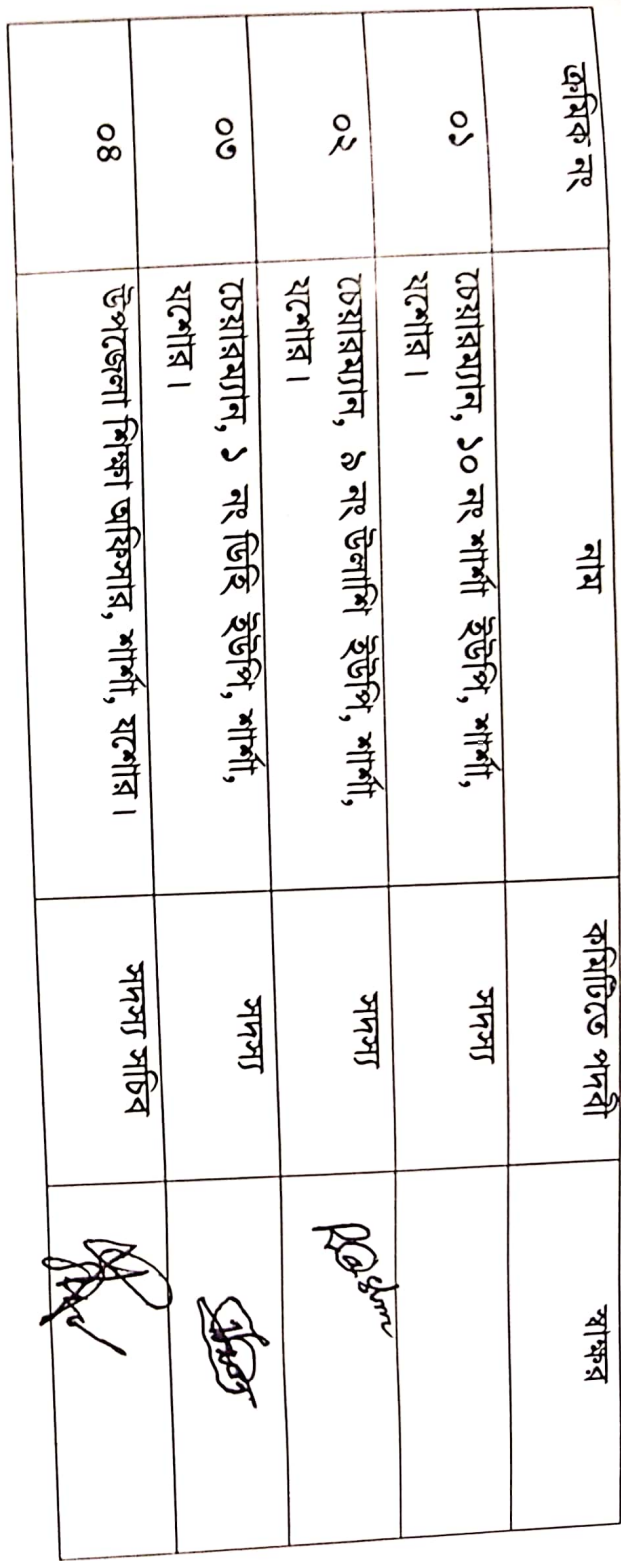 ক্রমিক নং নাম কমিটিতে পদবী স্বাক্ষর
০১ চেয়ারম্যান, ১০ নং শার্শা ইউপি, শার্শা, সদস্য
যশোর।
০২ চেয়ারম্যান, ৯ নং উলাশি ইউপি, শার্শা, সদস্য
যশোর।
০৩ চেয়ারম্যান, ১ নং ডিহি ইউপি, শার্শা, সদস্য
যশোর।
০৪ উপজেলা শিক্ষা অফিসার, শার্শা, যশোর। সদস্য সচিব